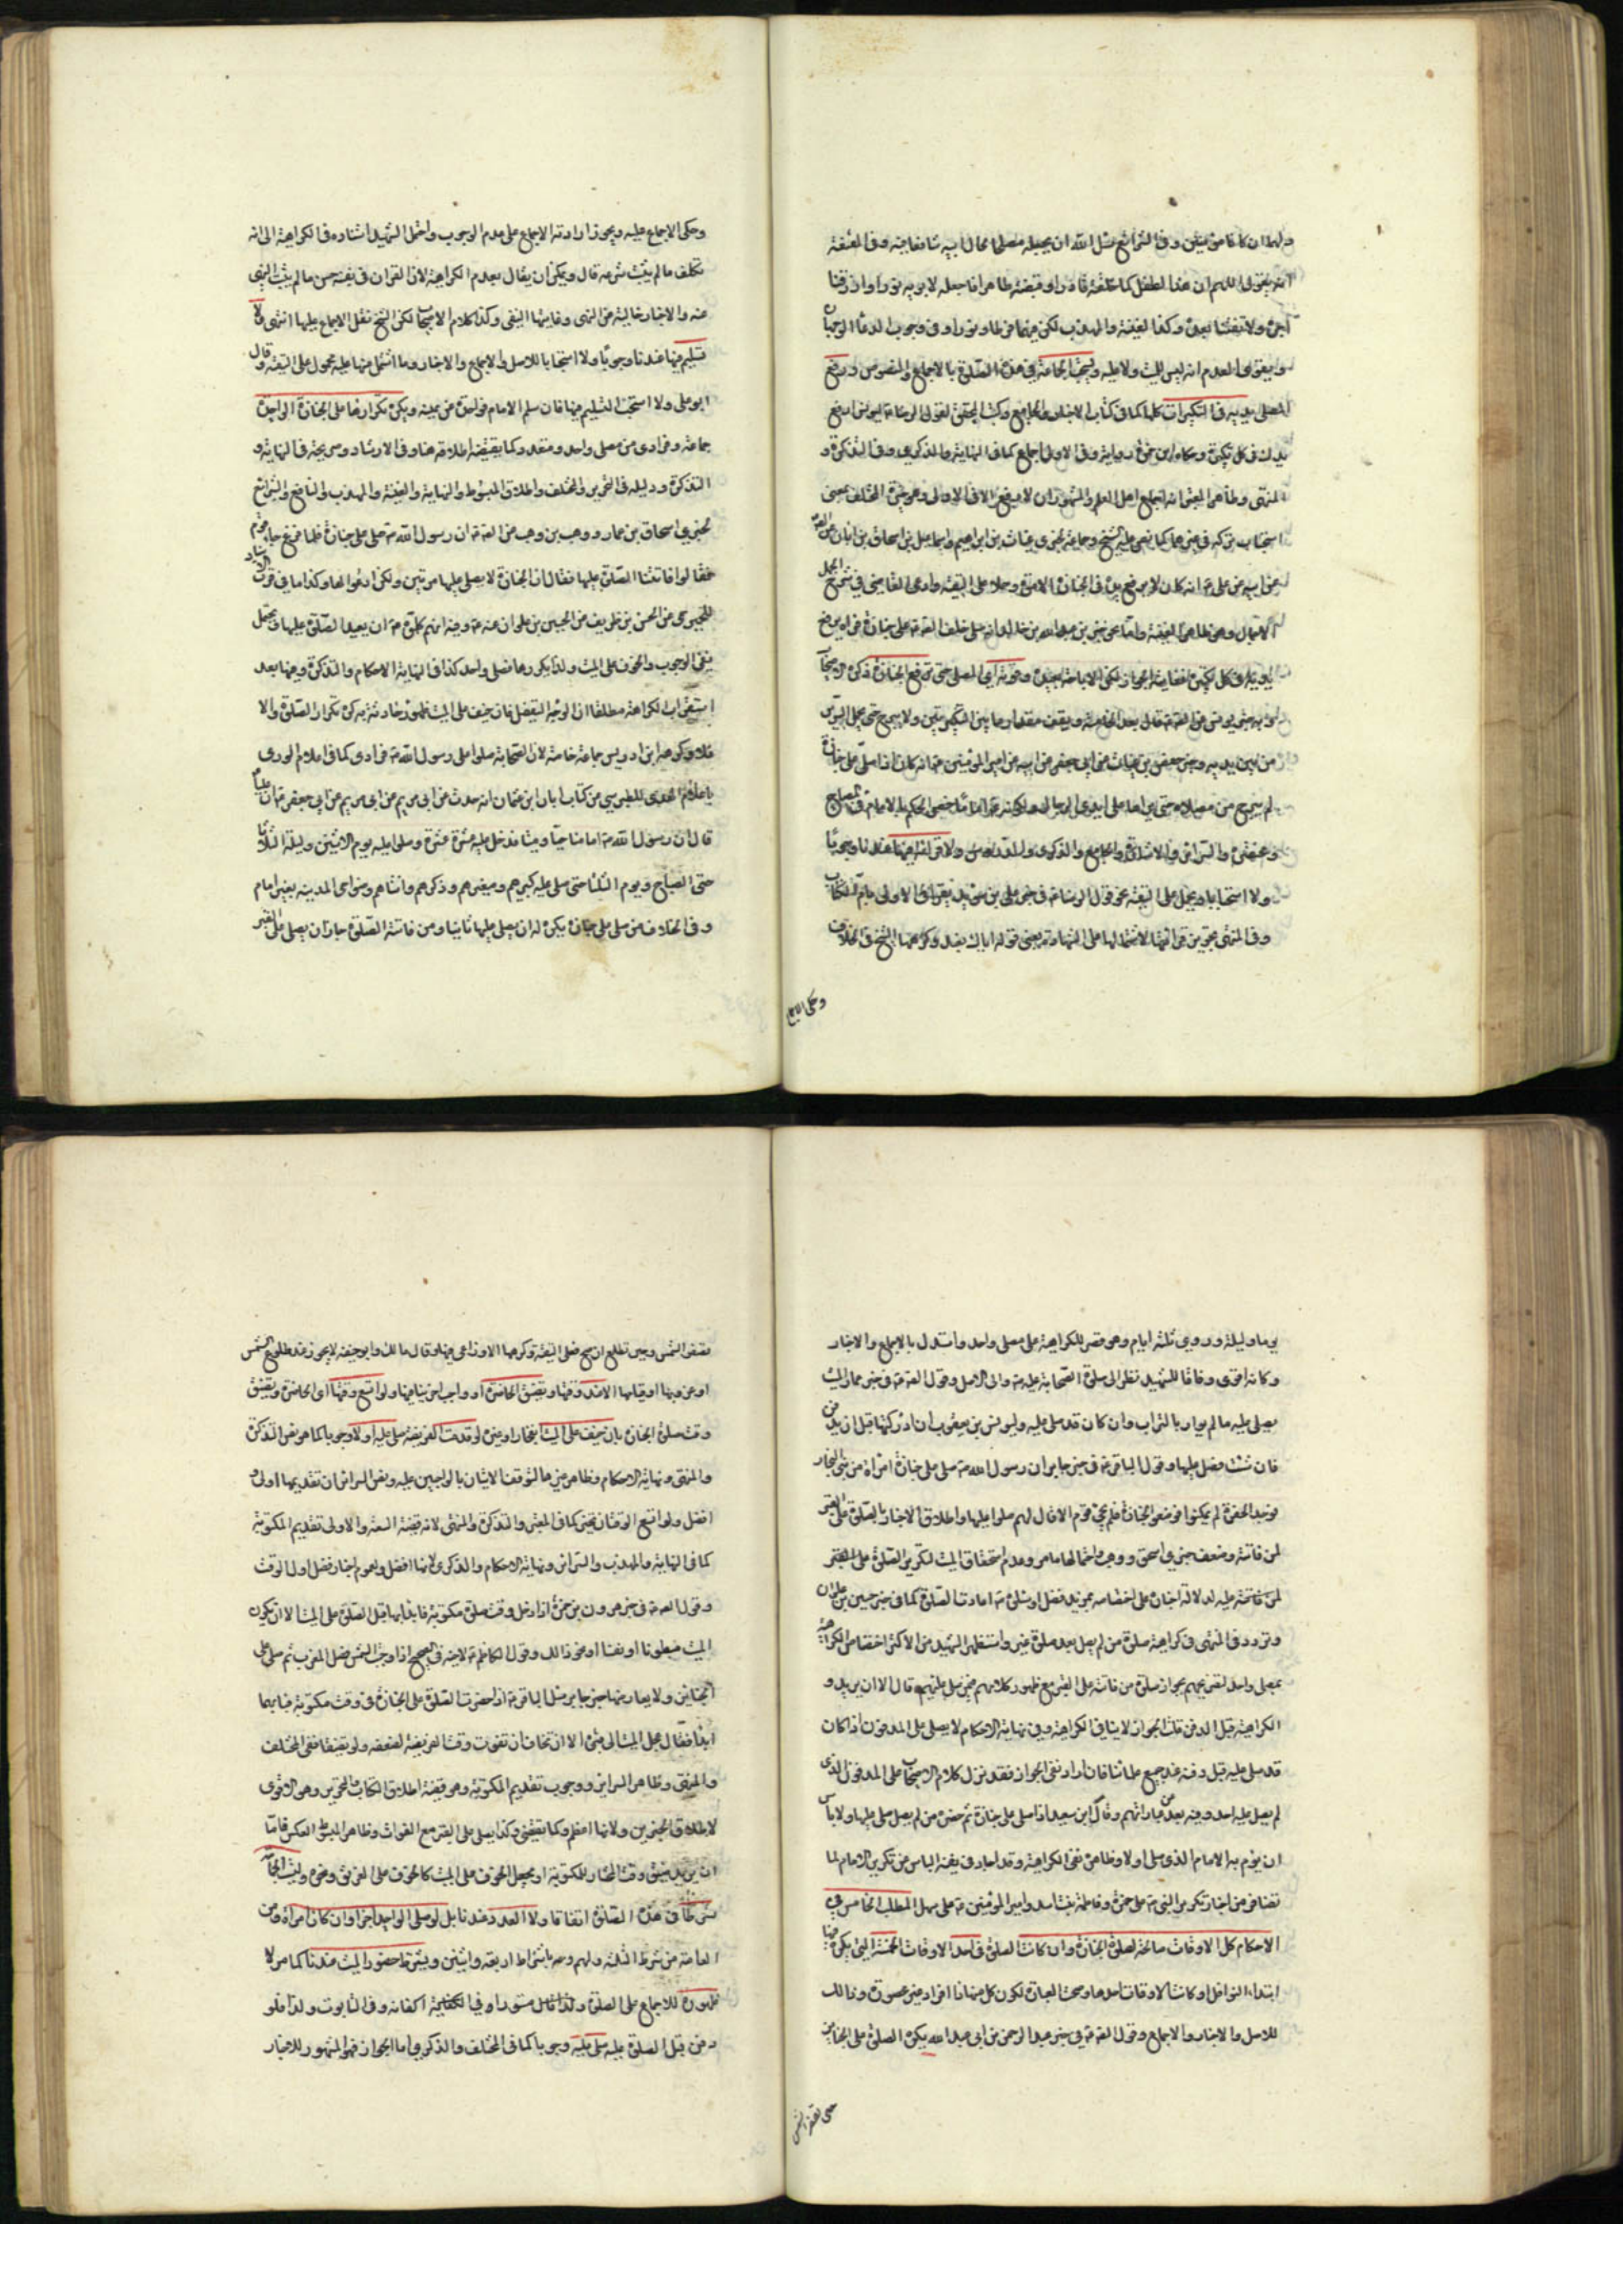 ولهذا ان كان من يتبين وفي الشرائع سئل الله ان يجعله مصلحا لحال ابيه شافعا فيه وفي المقنعة
انه يقول اللهم ان هذا الطفل كما خلقته قادرا وقبضته طاهرا فاجعله لابويه نورا وارزقنا
اجره ولا تفتنا بعده وكذا الغنية والمهذب لكن فيهما فرطا ونورا وفي وجوب الدعاء الوجهان
واقوى العدم اذ ليس للميت ولا عليه ويستحب الجماعة في هذه الصلوة بالاجماع والنصوص ورفع
المصلي يديه في التكبيرات كلها كما في كتابي الاخبار والجامع وكتب المحقق لقول الرضا ع ليونس ارفع
يدك في كل تكبيرة وحكاه ابن حمزة رواية وفي الاول اجماع كما في النهاية والذكرى وفي التذكرة و
المنتهى وظاهر المعتبر انه اجماع اهل العلم والمشهور ان لا يرفع الا في الاولى وهو خيرة المختلف بمعنى
استحباب تركه في غيرها كما نص عليه الشيخ وجماعة لخبري غياث بن ابراهيم واسماعيل بن اسحاق بن ابان عن الصادق
عن ابيه عن علي ع انه كان لا يرفع يده في الجنازة الا مرة وحملا على التقية وادعى القاضي في شرح الجمل
الاجماع وهو ظاهر الغنية واما نحو خبر عبد الله بن خالد انه صلى خلف الصادق ع على جنازة فرآه يرفع
يديه في كل تكبيرة فغايته الجواز لكن الاباحة بعيدة ووقوفه اي المصلي حتى ترفع الجنازة ذكره الاصحاب
وبه خبر يونس عن الصادق ع قال بعد الخامسة ويقف مقدار ما بين التكبيرتين ولا يبرح حتى يحمل السرير
من بين يديه وخبر حفص بن غياث عن ابي جعفر عن ابيه عن امير المؤمنين ع انه كان اذا صلى على جنازة
لم يبرح من مصلاه حتى يراها على ايدي الرجال ولكونه ع اماما خص الحكم بالامام في المصباح
ومختصره والسرائر والاشارة والجامع والذكرى والدروس ولا قراءة فيها عندنا وجوبا
ولا استحبابا ويحمل على التقية نحو قول الرضا ع في خبر علي بن سويد يقرأ في الاولى بام الكتاب
وفي المنتهى تجويز قراءتها لاشتمالها على الشهادة يعني قوله اياك نعبد وكرهها الشيخ في الخلاف
وحكى الاجماع
وحكى الاجماع عليه ويجوز ارادته الاجماع على عدم الوجوب واحتمل الشهيد استناده في الكراهية الى انه
تكلف ما لم يثبت شرعه قال ويمكن ان يقال بعدم الكراهية لان القران في نفسه حسن ما لم يثبت النهي
عنه والاخبار خالية عن النهي وغايتها النفي وكذا كلام الاصحاب لكن الشيخ نقل الاجماع عليها انتهى ولا
تسليم فيها عندنا وجوبا ولا استحبابا للاصل والاجماع والاخبار وما اشتمل منها عليه محمول على التقية وقال
ابو علي ولا استحب التسليم فيها فان سلم الامام فواحدة عن يمينه ويكره تكرارها على الجنازة الواحدة
جماعة وفرادى من مصل واحد ومتعدد كما يقتضيه اطلاقه هنا وفي الارشاد وصريحه في النهاية و
التذكرة ودليله في التحرير والمختلف واطلاق المبسوط والنهاية والغنية والمهذب والنافع والشرائع
لخبري اسحاق بن عمار ووهب بن وهب عن الصادق ع ان رسول الله ص صلى على جنازة فلما فرغ جاء قوم
فقالوا فاتتنا الصلوة عليها فقال ان الجنازة لا يصلى عليها مرتين ولكن ادعوا لها وكذا ما في قرب الاسناد
للحميري عن الحسن بن ظريف عن الحسين بن علوان عنه ع وفيه انهم كلموه ص ان يعيد الصلوة عليها ويحتمل
نفي الوجوب والخوف على الميت ولذا يكررها مصل واحد كذا في نهاية الاحكام والتذكرة وفيهما بعد
استقراب الكراهة مطلقا ان الوجه التفصيل فان خيف على الميت ظهور حادثة به كره تكرار الصلوة والا
فلا وكرهه ابن ادريس جماعة خاصة لان الصحابة صلوا على رسول الله ص فرادى كما في اعلام الورى
باعلام الهدى للطبرسي من كتاب ابان ابن عثمان انه حدث عن ابي مريم عن ابي جعفر ع ان عليا ع
قال ان رسول الله ص امامنا حيا وميتا فدخل عليه عشرة عشرة وصلوا عليه يوم الاثنين وليلة الثلاثاء
حتى الصباح ويوم الثلثا حتى صلى عليه كبيرهم وصغيرهم وذكرهم وانثاهم وضواحي المدينه بغير امام
وفي الخلاف من صلى على جنازة يكره له ان يصلي عليها ثانيا ومن فاتته الصلوة جاز ان يصلي على القبر
يوما وليلة وروي ثلثة ايام وهو قصر للكراهية على مصل واحد واستدل بالاجماع والاخبار
وكانه اقوى وفاقا للشهيد نظرا الى صلوة الصحابة عليه ص والى الاصل وقول الصادق ع في خبر عمار الميت
يصلى عليه ما لم يوار بالتراب وان كان قد صلي عليه وليونس بن يعقوب ان ادركتها قبل ان يدفن
فان شئت فصل عليها وقول الباقر ع في خبر جابر ان رسول الله ص صلى على جنازة امراة من بني النجار
فوجد الحفرة لم يمكنوا فوضعوا الجنازة فلم يجئ قوم الا قال لهم صلوا عليها واطلاق الاخبار بالصلوة على القبر
لمن فاتته وضعف خبري اسحق ووهب واحتمالهما ما مر وعدم استحقاق الميت لتكرير الصلوة على القبر
وتردد في المنتهى في كراهية صلوة من لم يصل بعد صلوة غيره واستظهر الشهيد من الاكثر اختصاص الكراهية
بمصل واحد لتصريحهم بجواز صلوة من فاتته على القبر مع ظهور كلامهم فيمن صلى عليهم قال الا ان يريدوا
الكراهية قبل الدفن قلت الجواز لا ينافي الكراهية وفي نهاية الاحكام لا يصلى على المدفون اذا كان
قد صلي عليه قبل دفنه عند جميع علمائنا فان اراد نفي الجواز فقد نزل كلام الاصحاب على المدفون الذي
لم يصل عليه احد وفيه بعد من عباراتهم وقال ابن سعيد اذا صلى على جنازة ثم حضره من لم يصل صلى عليها ولا باس
ان يؤم به الامام الذي صلى اولا وظاهره نفي الكراهية وقد اجاد في نفيه الباس عن تكرير الامام لما
تضافر من اخبار تكرير النبي ص على حمزة وفاطمة بنت اسد وامير المؤمنين ع على سهل المطلب الخامس في
الاحكام كل الاوقات صالحة لصلوة الجنازة وان كانت الصلوة في احد الاوقات الخمسة التي يكره فيها
ابتداء النوافل او كانت الاوقات احدها وصحت العبارة لكون كل منها ذا افراد غير محصورة وذلك
للاصل والاخبار والاجماع وقول الصادق ع في خبر عبد الرحمن بن ابي عبد الله يكره الصلوة على الجنائز
حتى تصفر الشمس
تصفر الشمس وحين تطلع ان صح فعلى التقية وكرهها الاوزاعي فيها وقال مالك وابو حنيفة لا يجوز عند طلوع الشمس
او غروبها او قيامها الا عند وقتها وتضيق الحاضرة او واجب اخر ينافيها ولو اتسع وقتها اي الحاضرة وتضيق
وقت صلوة الجنازة بان خيف على الميت انفجار او غيره لو قدمت الفريضة صلي عليه اولا وجوبا كما هو نص التذكرة
والمنتهى ونهاية الاحكام وظاهر غيرها لتوقف الاتيان بالواجبين عليه ونص السرائر ان تقديمها اولى و
افضل ولو اتسع الوقتان تخير كما في المعتبر والتذكرة والمنتهى لانه قضية السعة والاولى تقديم المكتوبة
كما في النهاية والمهذب والسرائر ونهاية الاحكام والذكرى لانها افضل ولعموم اخبار فضل اول الوقت
وقول الصادق ع في خبر هرون بن حمزة اذا دخل وقت صلوة مكتوبة فابدأ بها قبل الصلوة على الميت الا ان يكون
الميت مبطونا او نفساء او نحو ذلك وقول الكاظم ع لاخيه في الصحيح اذا وجبت الشمس فصل المغرب ثم صل على
الجنائز ولا يعارضها خبر جابر سئل الباقر ع اذا حضرت الصلوة على الجنازة في وقت مكتوبة فبايهما
ابدأ فقال عجل الميت الى قبره الا ان تخاف ان تفوت وقت الفريضة لضعفه ولو تضيقا ففي المختلف
والمنتهى وظاهر السرائر ووجوب تقديم المكتوبة وهو قضية اطلاق الكتاب والتحرير وهو الاقوى
لاطلاق الخبرين ولانها اعظم وكما يقتضى وكذا يصلى على القبر مع الفوات وظاهر المبسوط العكس فاما
ان يريد ضيق وقت المختار للمكتوبة او يجعل الخوف على الميت كالخوف على الغريق ونحوه وليست الجماعة
شرطا في هذه الصلوة اتفاقا ولا العدد عندنا بل لو صلى الواحد اجزا وان كان امراة ومن
العامة من شرط الثلثة ولهم وجه باشتراط اربعة واثنين ويشترط حضور الميت عندنا كما مر لا
ظهوره للاجماع على الصلوة ولذا قال مستورا وفي الكفاية اكفانه وفي التابوت ولذا فلو
دفن قبل الصلوة عليه صلي عليه وجوبا كما في المختلف والذكرى اما الجواز فهو المشهور للاخبار